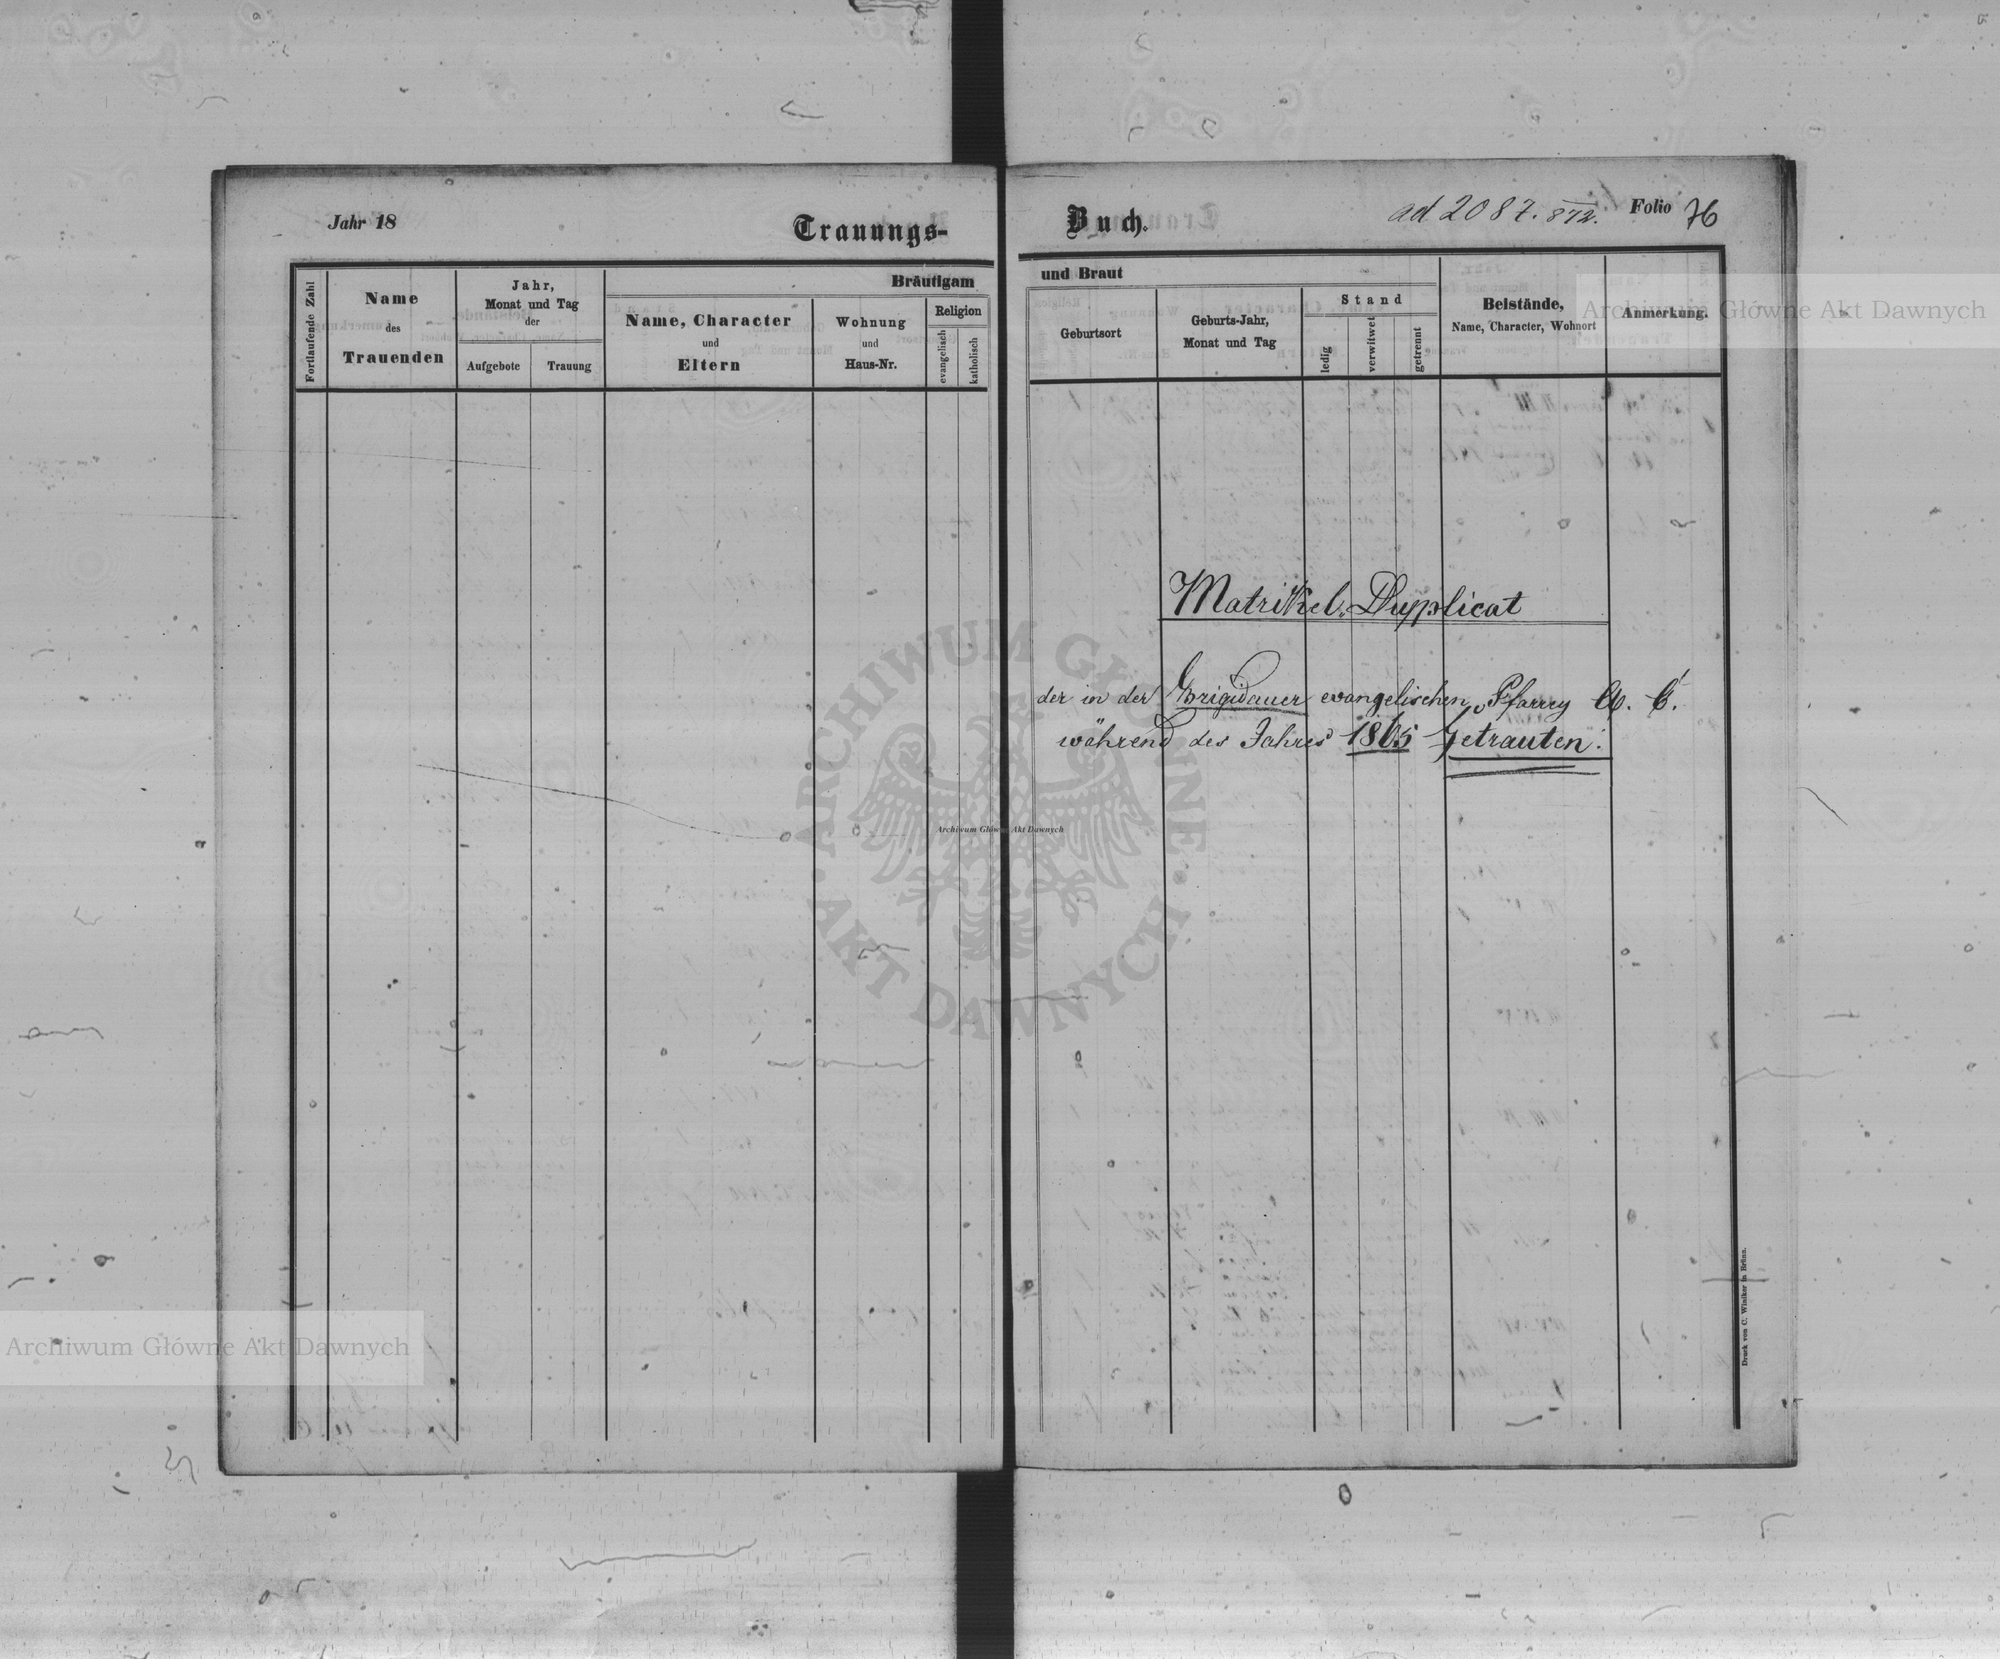 Jahr 18
Trauungs-
Fortlaufende Zahl
Name
des
Trauenden
Jahr,
Monat und Tag
der
Aufgebote
Trauung
Bräutigam
Name, Character
und
Eltern
Wohnung
und
Haus-Nr.
Religion
evangelisch
katholisch
Buch.
ad 2087. 872.
Folio 76
und Braut
Geburtsort
Geburts-Jahr,
Monat und Tag
Stand
ledig
verwitwet
getrennt
Beistände,
Name, Character, Wohnort
Anmerkung.
Archiwum Główne Akt Dawnych
Matrikel-Duplicat
der in der Brigidauer evangelischen Pfarrey A. C.
während des Jahres 1865 Getrauten.
ARCHIWUM GŁÓWNE
Archiwum Główne Akt Dawnych
AKT DAWNYCH
Druck von C. Winiker in Brünn.
Archiwum Główne Akt Dawnych